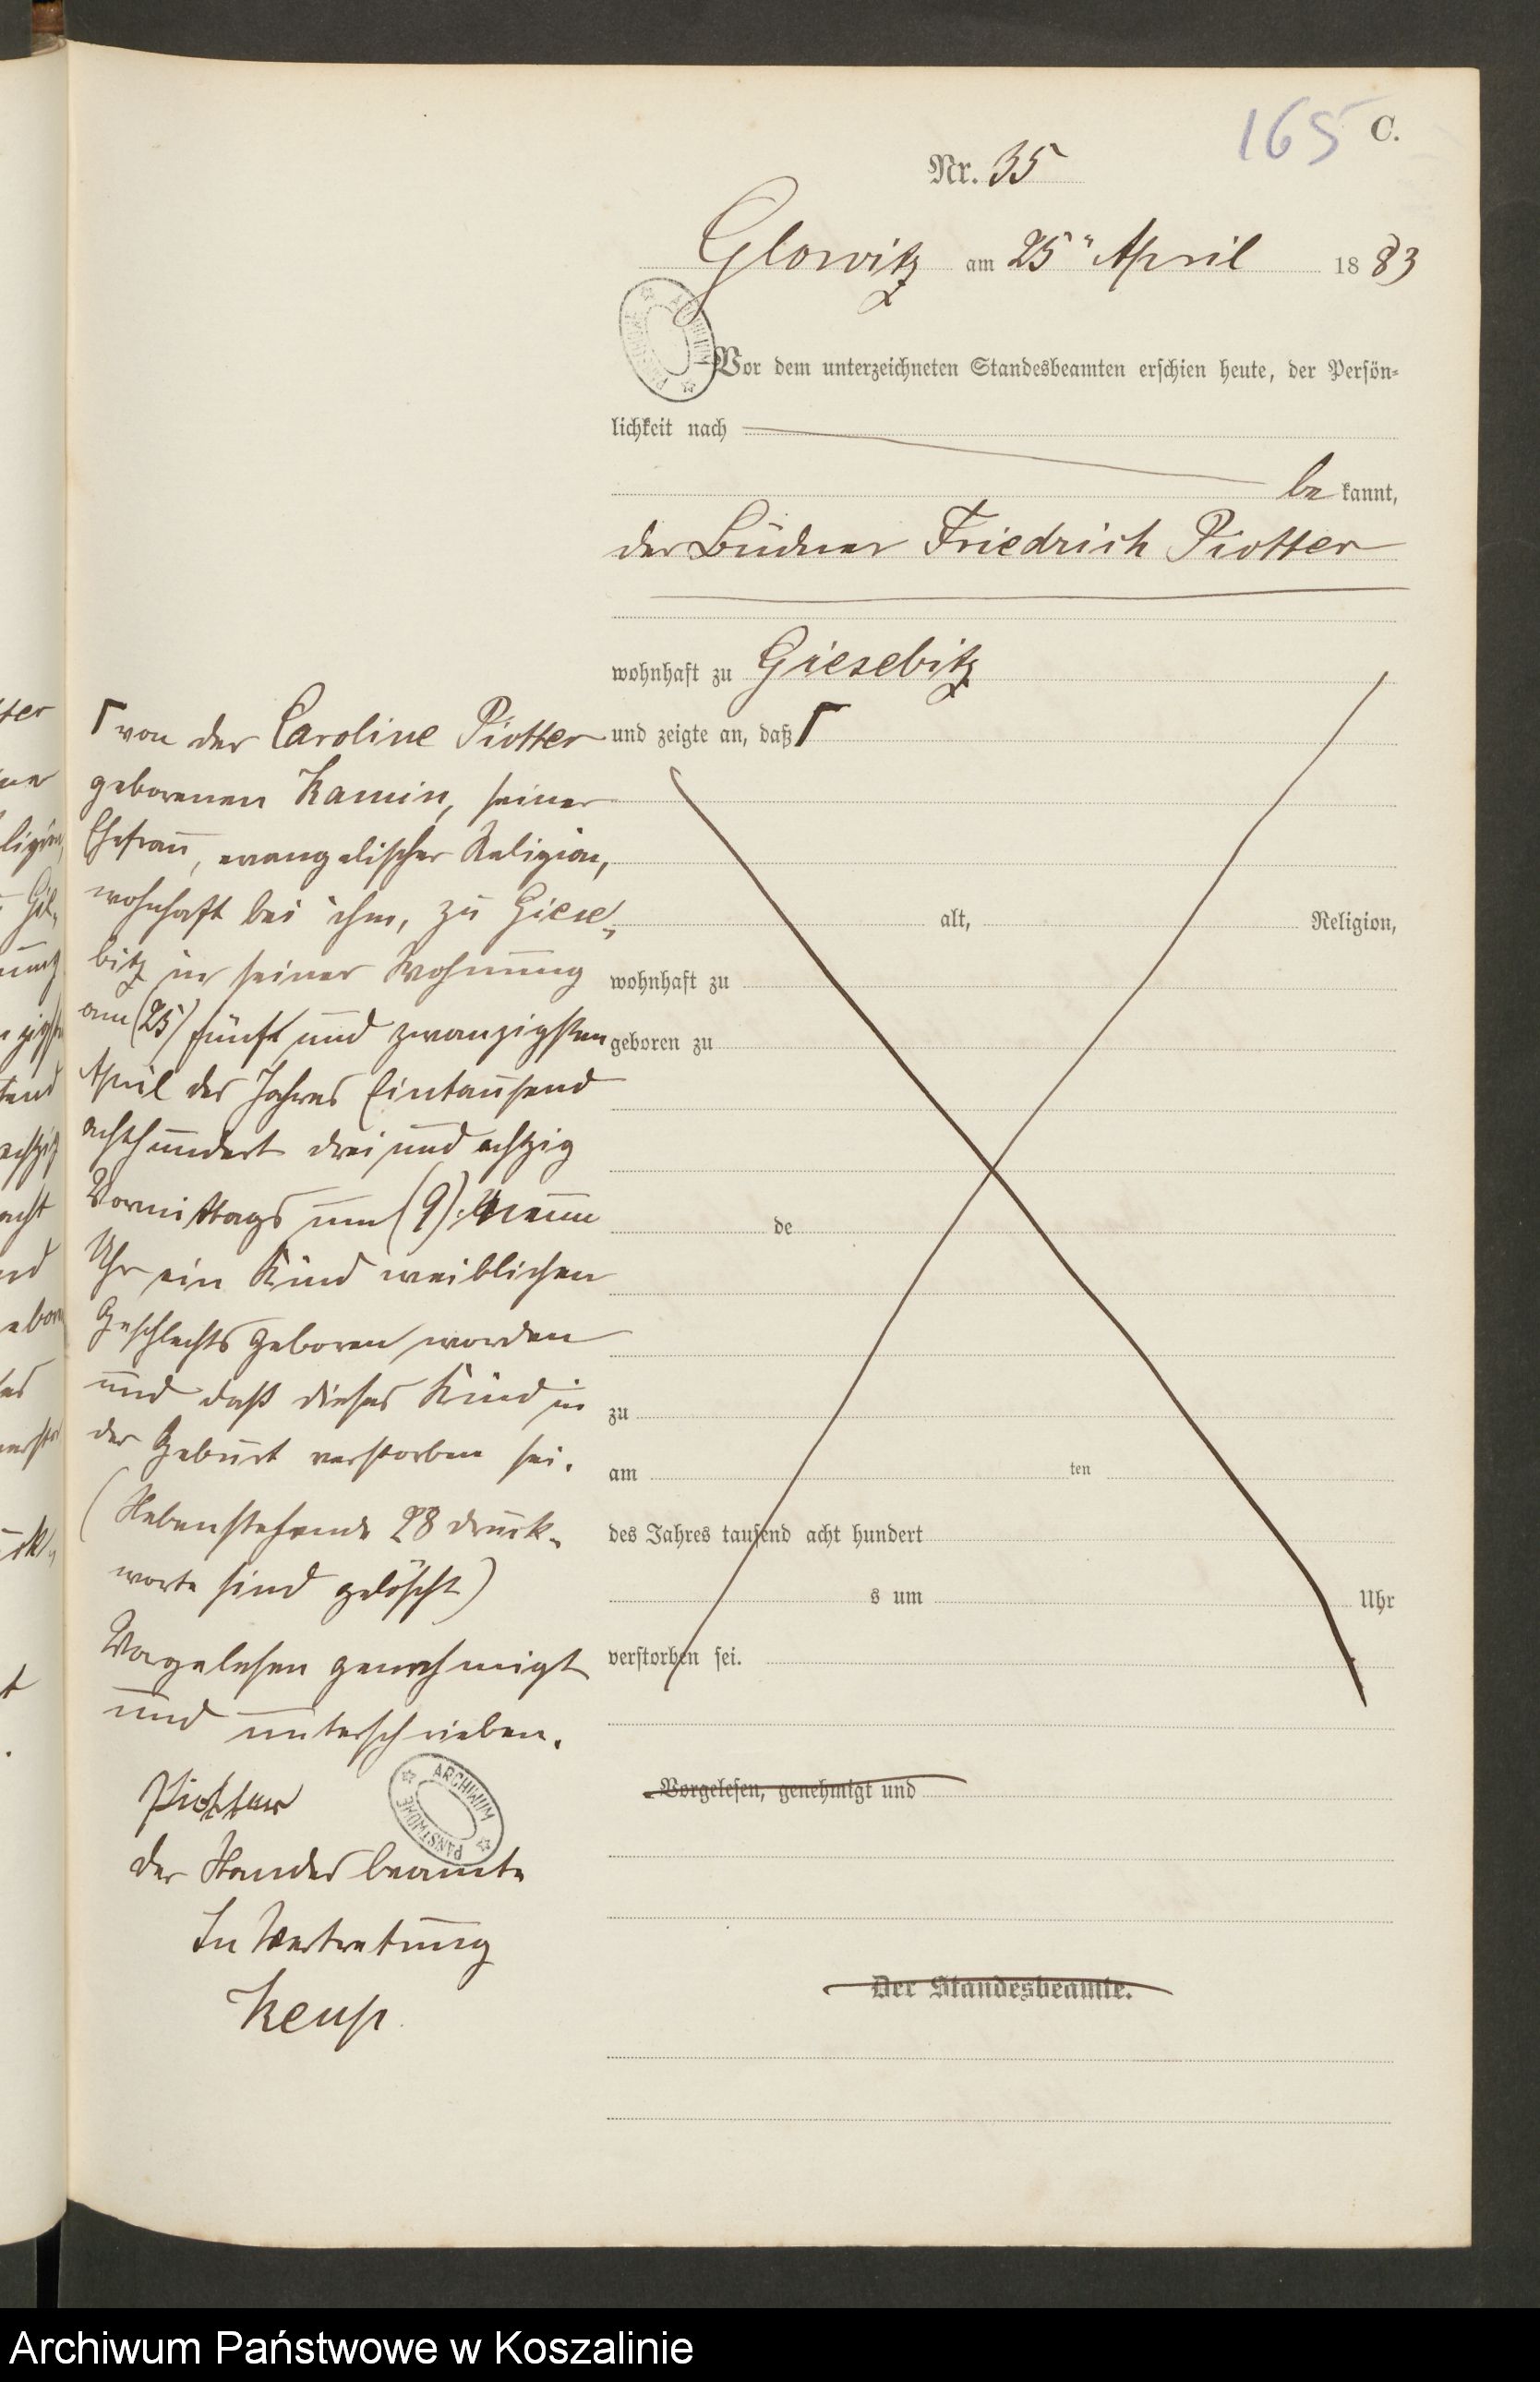 165 C.
Nr. 35
Glowitz am 25" April 1883
Vor dem unterzeichneten Standesbeamten erschien heute, der Persön-
lichkeit nach
bekannt,
der Büdner Friedrich Piotter
wohnhaft zu Giesebitz
und zeigte an, daß Γ
alt, Religion,
wohnhaft zu
geboren zu
de
zu
am ten
des Jahres tausend acht hundert
s um Uhr
verstorben sei.
Vorgelesen, genehmigt und
Der Standesbeamte.
Γ von der Caroline Piotter
geborenen Kamin, seiner
Ehefrau, evangelischer Religion,
wohnhaft bei ihm, zu Giese-
bitz in seiner Wohnung
am (25) fünf und zwanzigsten
April des Jahres Eintausend
achthundert drei und achtzig
Vormittags um (9) neun
Uhr ein Kind weiblichen
Geschlechts geboren worden
und daß dieses Kind in
der Geburt verstorben sei.
(Nebenstehende 28 Druck-
worte sind gelöscht)
Vorgelesen genehmigt
und unterschrieben.
Piotter
der Standesbeamte
In Vertretung
Keup.
ARCHIWUM PAŃSTWOWE
Archiwum Państwowe w Koszalinie